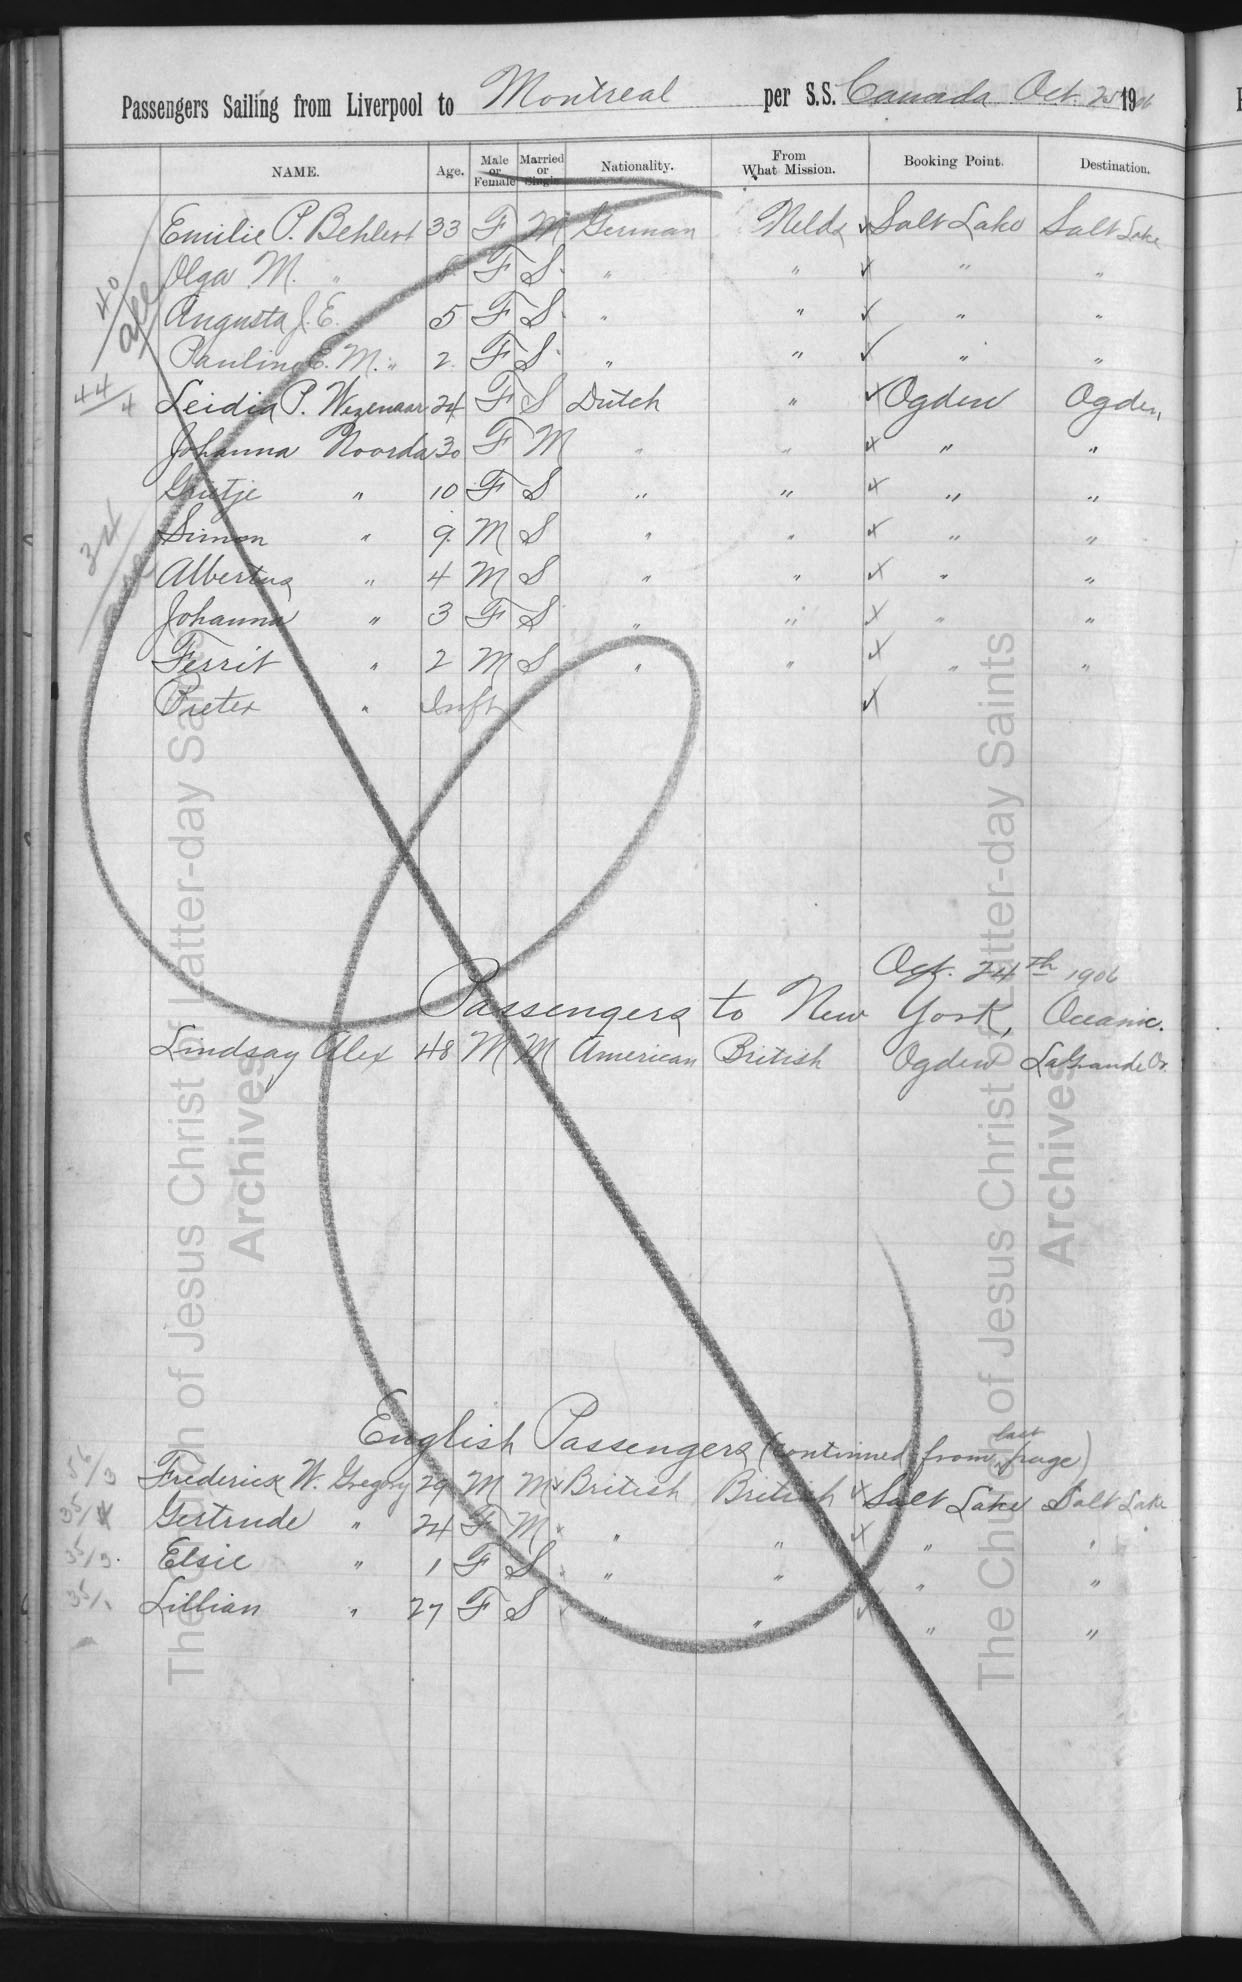 Passengers Sailing from Liverpool to Montreal per S.S. Canada Oct. 25 1906
NAME. Age. Male or Female Married or Single Nationality. From What Mission. Booking Point. Destination.
Emilie P. Behlert 33 F M German Nelds ✓ Salt Lake Salt Lake
Olga M. " F S " " ✓ " "
Augusta J. E. 5 F S " " ✓ " "
Pauline E. M. " 2 F S " " ✓ " "
Leidia P. Wezenaar 24 F S Dutch " ✓ Ogden Ogden
Johanna Noorda 30 F M " " ✓ " "
Grietje " 10 F S " " ✓ " "
Simon " 9 M S " " ✓ " "
Albertus " 4 M S " " ✓ " "
Johanna " 3 F S " " ✓ " "
Ferrit " 2 M S " " ✓ " "
Pieter " Inft ✓
40
all
44/4
34
Oct. 24th 1906
Passengers to New York, Oceanic.
Lindsay Alex 48 M M American British Ogden LaGrande Or.
English Passengers (continued from last page)
56/3 Frederick W. Gregory 29 M M British British ✓ Salt Lake Salt Lake
35/4 Gertrude " 24 F M " " ✓ " "
35/3. Elsie " 1 F S " " " "
35/1 Lillian " 27 F S " " ✓ " "
The Church of Jesus Christ of Latter-day Saints
Archives
The Church of Jesus Christ of Latter-day Saints
Archives